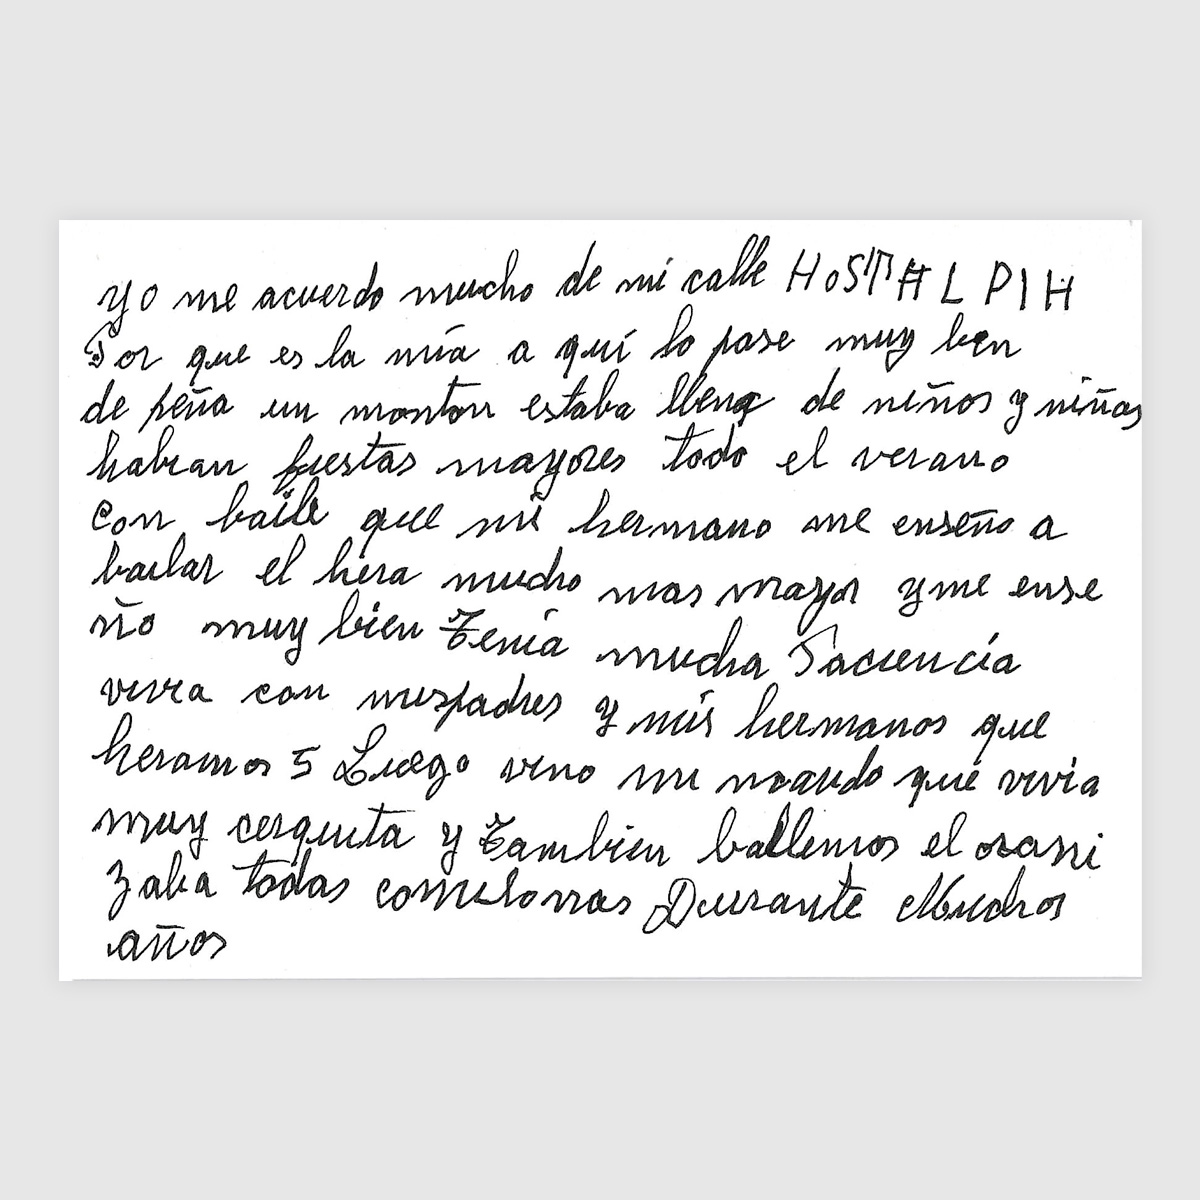 Yo me acuerdo mucho de mi calle HoSTAL PIH
Por que es la mía a quí lo pase muy bien
de peña un monton estaba llena de niños y niñas
habian fiestas mayores todo el verano
con baile que mi hermano me enseño a
bailar el hera mucho mas mayor y me ense
ño muy bien Tenía mucha Paciencía
vivia con mis padres y mis hermanos que
heramos 5 Luego vino mi marido que vivia
muy cerquita y Tambien bailemos el
zaba todas Durante Muchos
años